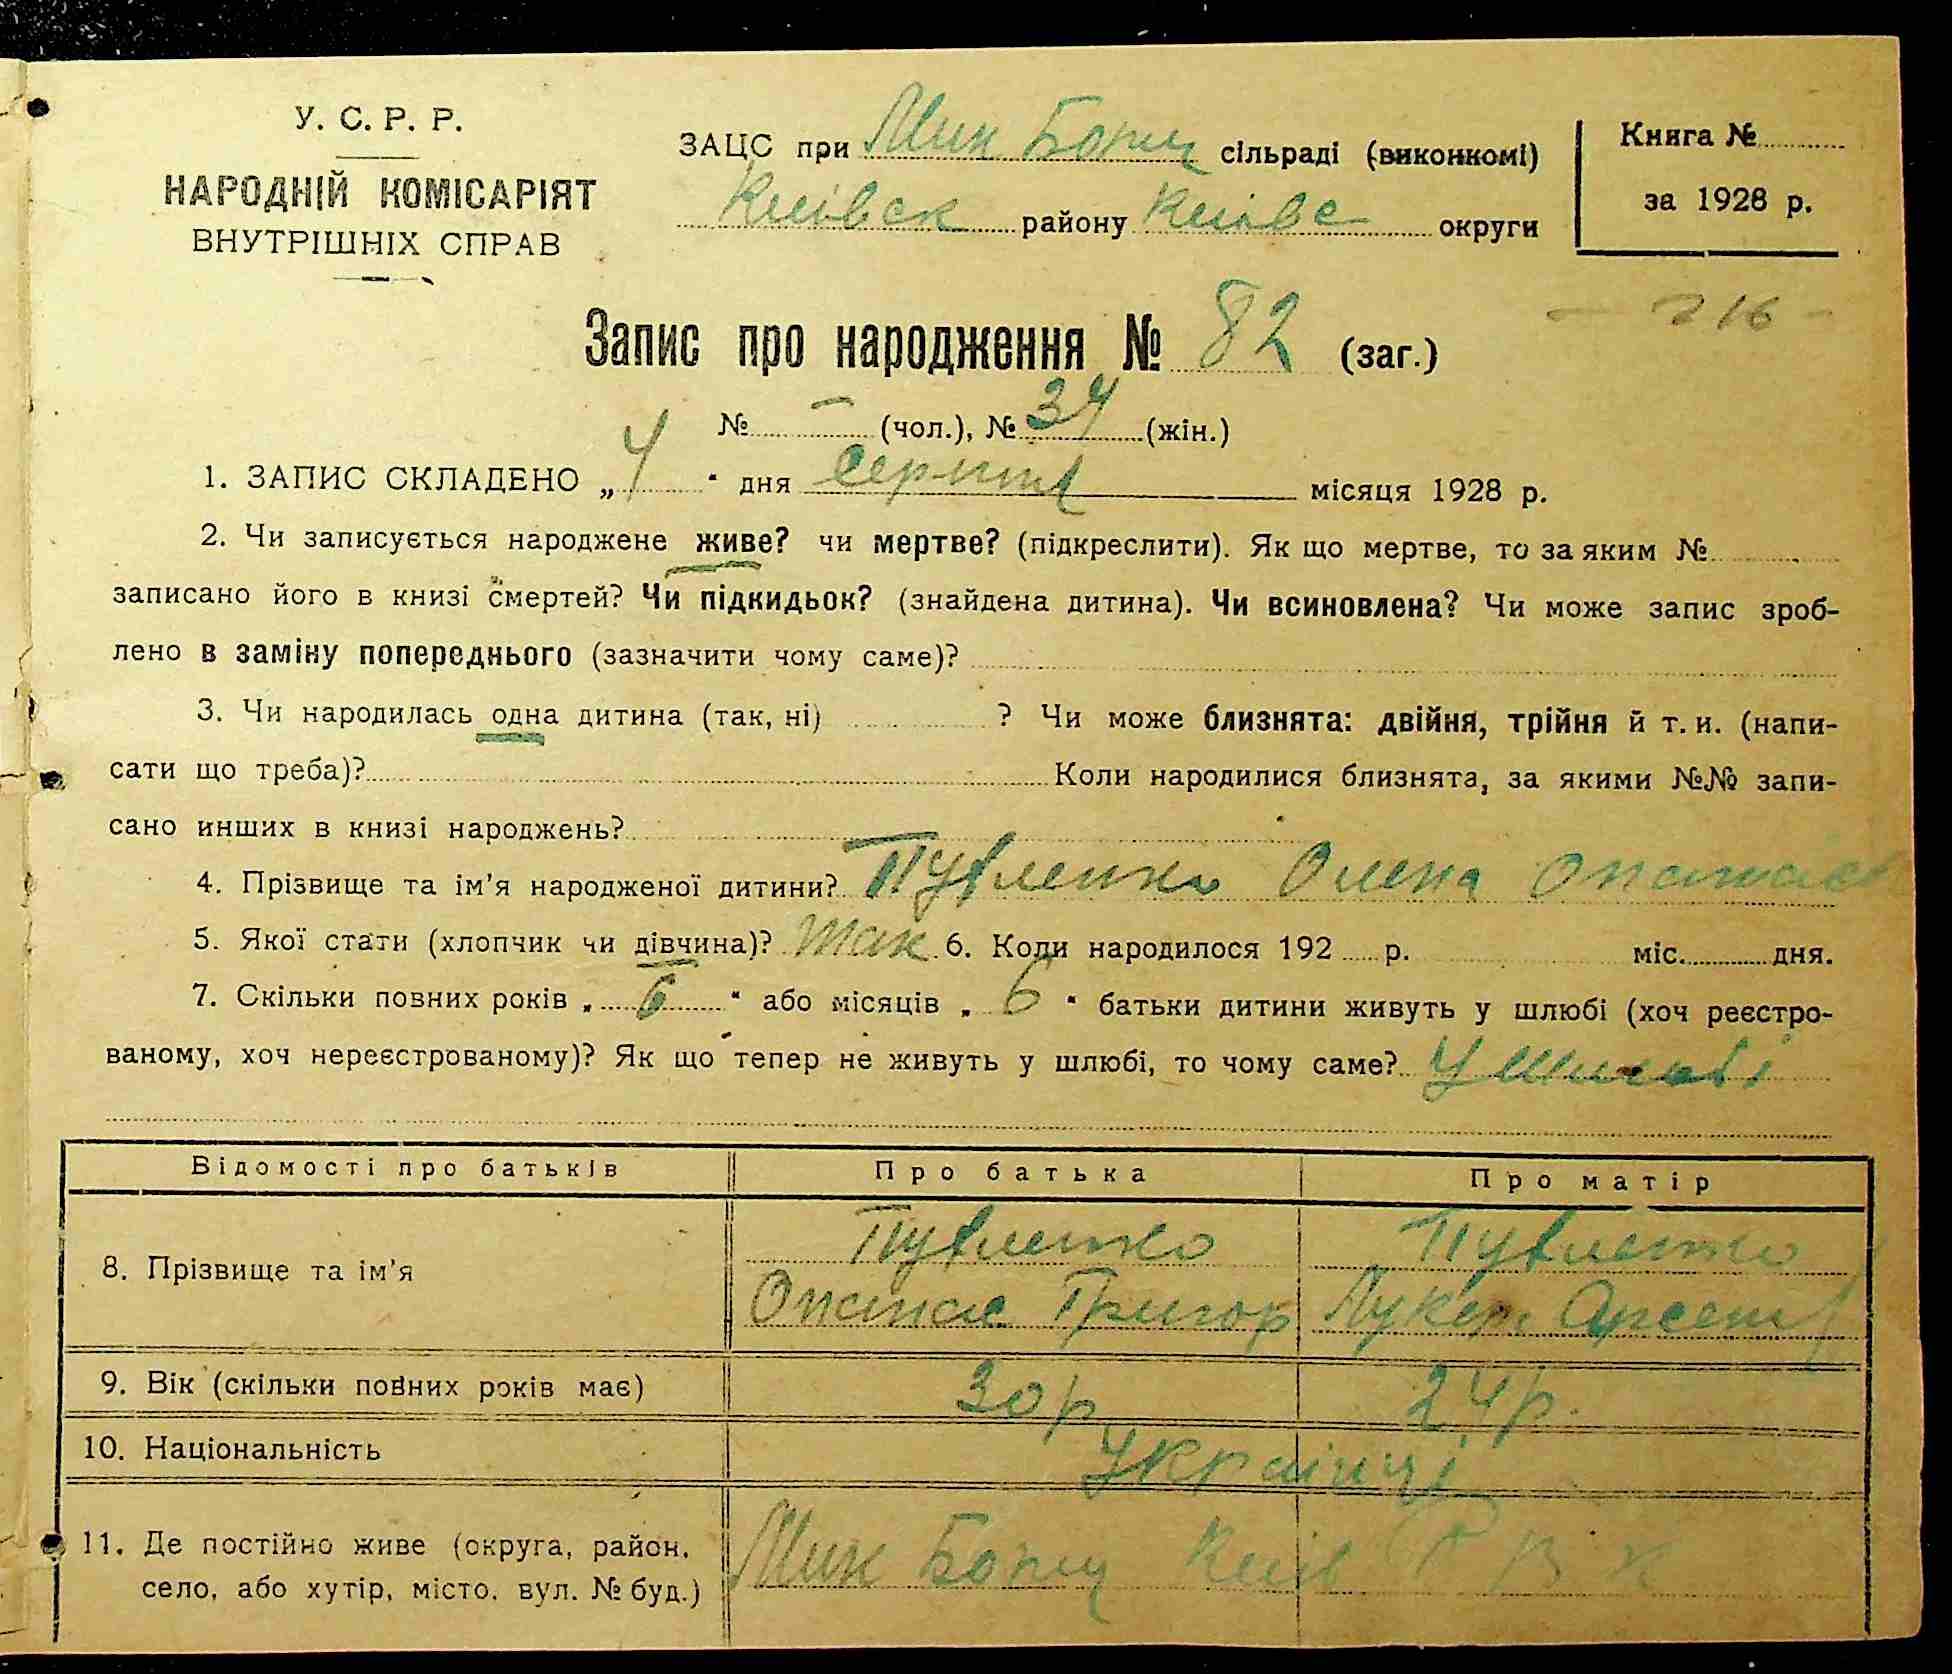 У. С. Р. Р.
НАРОДНІЙ КОМІСАРІЯТ
ВНУТРІШНІХ СПРАВ
ЗАЦС при Мик Борщ сільраді (виконкомі)
Київск района Київс округи
Книга №
за 1928 р.
Запис про народження № 82 (заг.)
- 216 -
№ - (чол.), № 34 (жін.)
1. ЗАПИС СКЛАДЕНО „ 4 “ дня серпня місяця 1928 р.
2. Чи записується народжене живе? чи мертве? (підкреслити). Як що мертве, то за яким №
записано його в книзі смертей? Чи підкидьок? (знайдена дитина). Чи всиновлена? Чи може запис зроб-
лено в заміну попереднього (зазначити чому саме)?
3. Чи народилась одна дитина (так, ні) ? Чи може близнята: двійня, трійня й т. и. (напи-
сати що треба)? Коли народилися близнята, за якими №№ запи-
сано инших в книзі народжень?
4. Прізвище та ім’я народженої дитини? Пувленко Олена Опанас
5. Якої стати (хлопчик чи дівчина)? так 6. Коли народилося 192 р. міс. дня.
7. Скільки повних років „ 6 “ або місяців „ 6 “ батьки дитини живуть у шлюбі (хоч реєстро-
ваному, хоч нереєстрованому)? Як що тепер не живуть у шлюбі, то чому саме? У шлюбі
Відомості про батьків Про батька Про матір
8. Прізвище та ім’я Пувленко Опанас Григор Пувленко Арсент
9. Вік (скільки повних років має) 30 р 24 р.
10. Національність Українці
11. Де постійно живе (округа, район,
село, або хутір, місто, вул. № буд.) Мик Борщ Київ Р В К